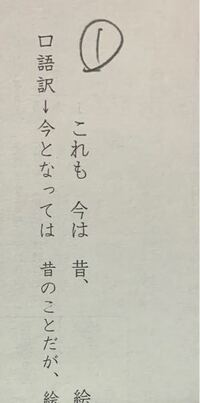 ①
これも 今は 昔、 絵
口語訳→今となっては 昔のことだが、 絵